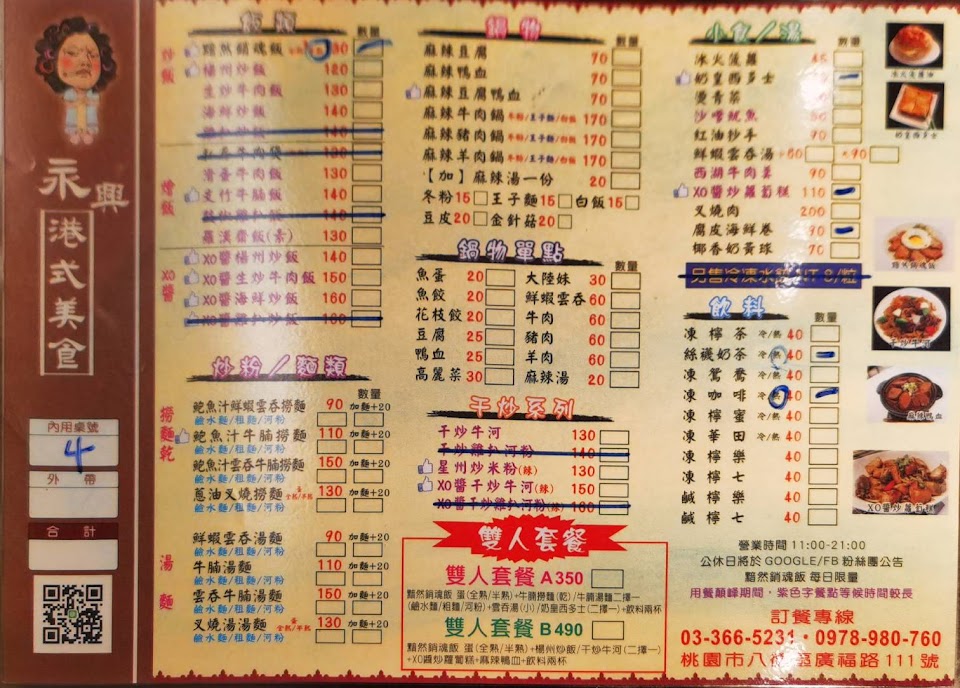 永興
港式美食
內用桌號
4
外帶
合計
飯類
數量
炒飯
黯然銷魂飯 130
楊州炒飯 120
生炒牛肉飯 130
海鮮炒飯 140
燴飯
滑蛋牛肉飯 130
皮竹牛腩飯 140
羅漢齋飯(素) 130
XO醬
XO醬楊州炒飯 140
XO醬生炒牛肉飯 150
XO醬海鮮炒飯 160
XO醬雞扒炒飯
炒粉/麵類
數量
撈麵乾
鮑魚汁鮮蝦雲吞撈麵 90 加麵+20
鹼水麵/粗麵/河粉
鮑魚汁牛腩撈麵 110 加麵+20
鹼水麵/粗麵/河粉
鮑魚汁雲吞牛腩撈麵 150 加麵+20
鹼水麵/粗麵/河粉
蔥油叉燒撈麵 蛋 全熟/半熟 130 加麵+20
鹼水麵/粗麵/河粉
湯麵
鮮蝦雲吞湯麵 90 加麵+20
鹼水麵/粗麵/河粉
牛腩湯麵 110 加麵+20
鹼水麵/粗麵/河粉
雲吞牛腩湯麵 150 加麵+20
鹼水麵/粗麵/河粉
叉燒湯湯麵 蛋 全熟/半熟 130 加麵+20
鹼水麵/粗麵/河粉
鍋物
數量
麻辣豆腐 70
麻辣鴨血 70
麻辣豆腐鴨血 70
麻辣牛肉鍋 冬粉/王子麵/白飯 170
麻辣豬肉鍋 冬粉/王子麵/白飯 170
麻辣羊肉鍋 冬粉/王子麵/白飯 170
【加】麻辣湯一份 20
冬粉15 王子麵15 白飯15
豆皮20 金針菇20
鍋物單點
數量
魚蛋 20 大陸妹 30
魚餃 20 鮮蝦雲吞 60
花枝餃 20 牛肉 60
豆腐 25 豬肉 60
鴨血 25 羊肉 60
高麗菜 30 麻辣湯 20
干炒系列
干炒牛河 130
干炒雞扒河粉 140
星州炒米粉(辣) 130
XO醬干炒牛河(辣) 150
XO醬干炒雞扒河粉(辣) 160
雙人套餐
雙人套餐A350
黯然銷魂飯 蛋(全熟/半熟)+牛腩撈麵(乾)/牛腩湯麵二擇一
(鹼水麵/粗麵/河粉)+雲吞湯(小)/奶皇西多士(二擇一)+飲料兩杯
雙人套餐B490
黯然銷魂飯 蛋(全熟/半熟)+楊州炒飯/干炒牛河(二擇一)
+XO醬炒蘿蔔糕+麻辣鴨血+飲料兩杯
小食/湯
數量
冰火菠蘿 45
奶皇西多士
燙青菜
沙嗲魷魚
紅油抄手 70
鮮蝦雲吞湯 小60 大90
西湖牛肉羹 90
XO醬炒蘿蔔糕 110
叉燒肉 200
腐皮海鮮卷 90
椰香奶黃球 70
飲料
數量
凍檸茶 冷/熱 40
絲襪奶茶 冷/熱 40
凍鴛鴦 冷/熱 40
凍咖啡 冷/熱 40
凍檸蜜 冷/熱 40
凍華田 冷/熱 40
凍檸樂 40
凍檸七 40
鹹檸樂 40
鹹檸七 40
營業時間 11:00-21:00
公休日將於GOOGLE/FB粉絲團公告
黯然銷魂飯 每日限量
用餐顛峰期間，紫色字餐點等候時間較長
訂餐專線
03-366-5231・0978-980-760
桃園市八德區廣福路111號
冰火菠蘿油
奶皇西多士
黯然銷魂飯
干炒牛河
麻辣鴨血
XO醬炒蘿蔔糕